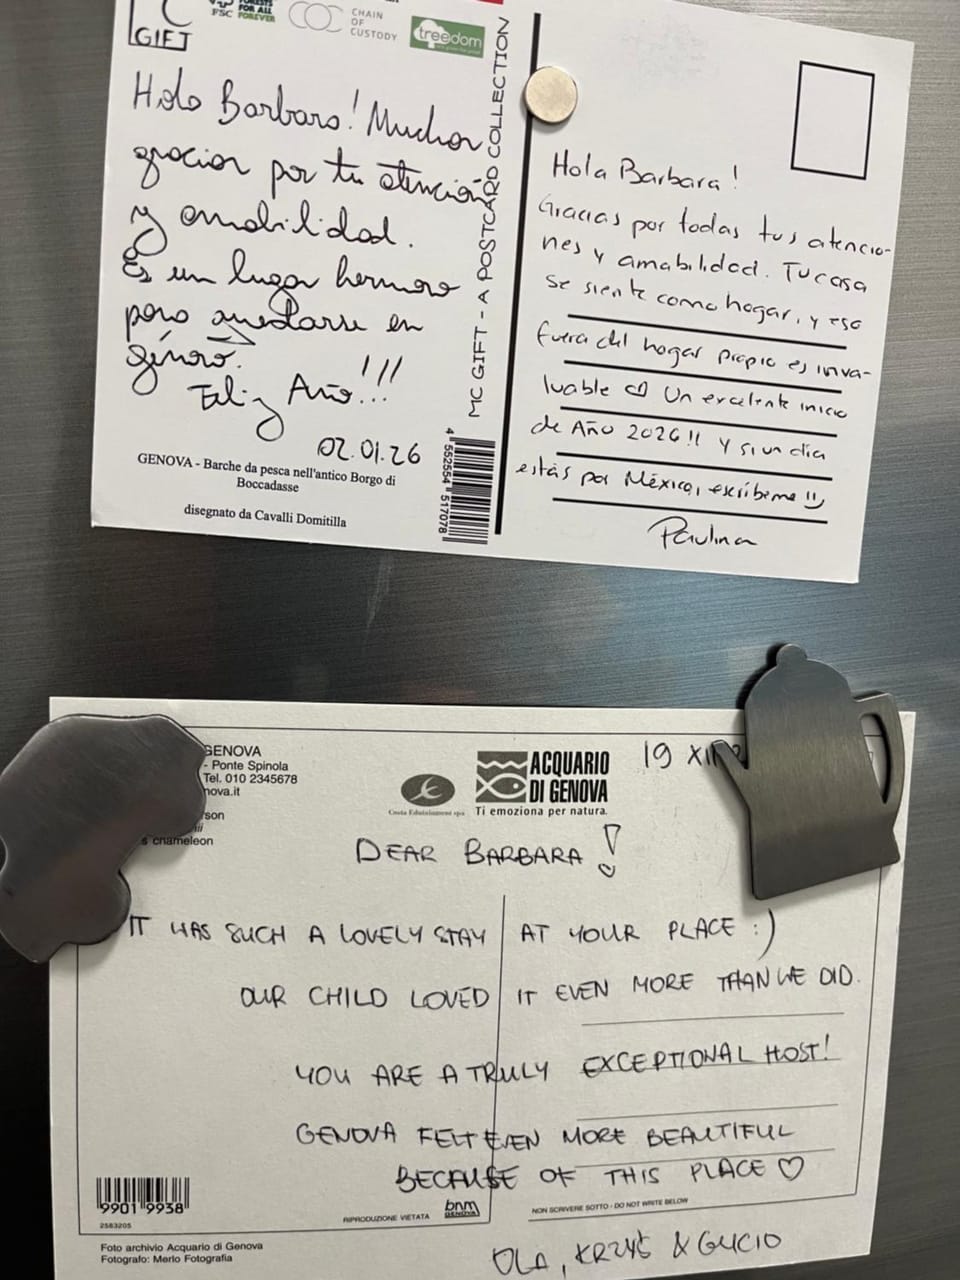 FSC
FORESTS
FOR ALL
FOREVER
COC
CHAIN
OF
CUSTODY
treedom
C
GIFT
Hola Barbara! Muchas
gracias por tu atención
y amabilidad.
Es un lugar hermoso
para quedarse en
génova.
Feliz Año!!!
02.01.26
GENOVA - Barche da pesca nell'antico Borgo di
Boccadasse
disegnato da Cavalli Domitilla
MC GIFT - A POSTCARD COLLECTION
4 552554 517078
Hola Barbara!
Gracias por todas tus atencio-
nes y amabilidad. Tu casa
se siente como hogar, y eso
fuera del hogar propio es inva-
luable ♡ Un excelente inicio
de Año 2026!! y si un día
estás por México, escríbeme !!
Paulina
GENOVA
- Ponte Spinola
Tel. 010 2345678
nova.it
rson
iii
s chameleon
Costa Edutainment spa
ACQUARIO
DI GENOVA
Ti emoziona per natura.
19 XII
DEAR BARBARA!
IT WAS SUCH A LOVELY STAY AT YOUR PLACE :)
OUR CHILD LOVED IT EVEN MORE THAN WE DID.
YOU ARE A TRULY EXCEPTIONAL HOST!
GENOVA FELT EVEN MORE BEAUTIFUL
BECAUSE OF THIS PLACE ♡
9901 9938
2583205
RIPRODUZIONE VIETATA
bnm
GENOVA
NON SCRIVERE SOTTO - DO NOT WRITE BELOW
Foto archivio Acquario di Genova
Fotografo: Merlo Fotografia
OLA, KRZYŚ & GUCIO